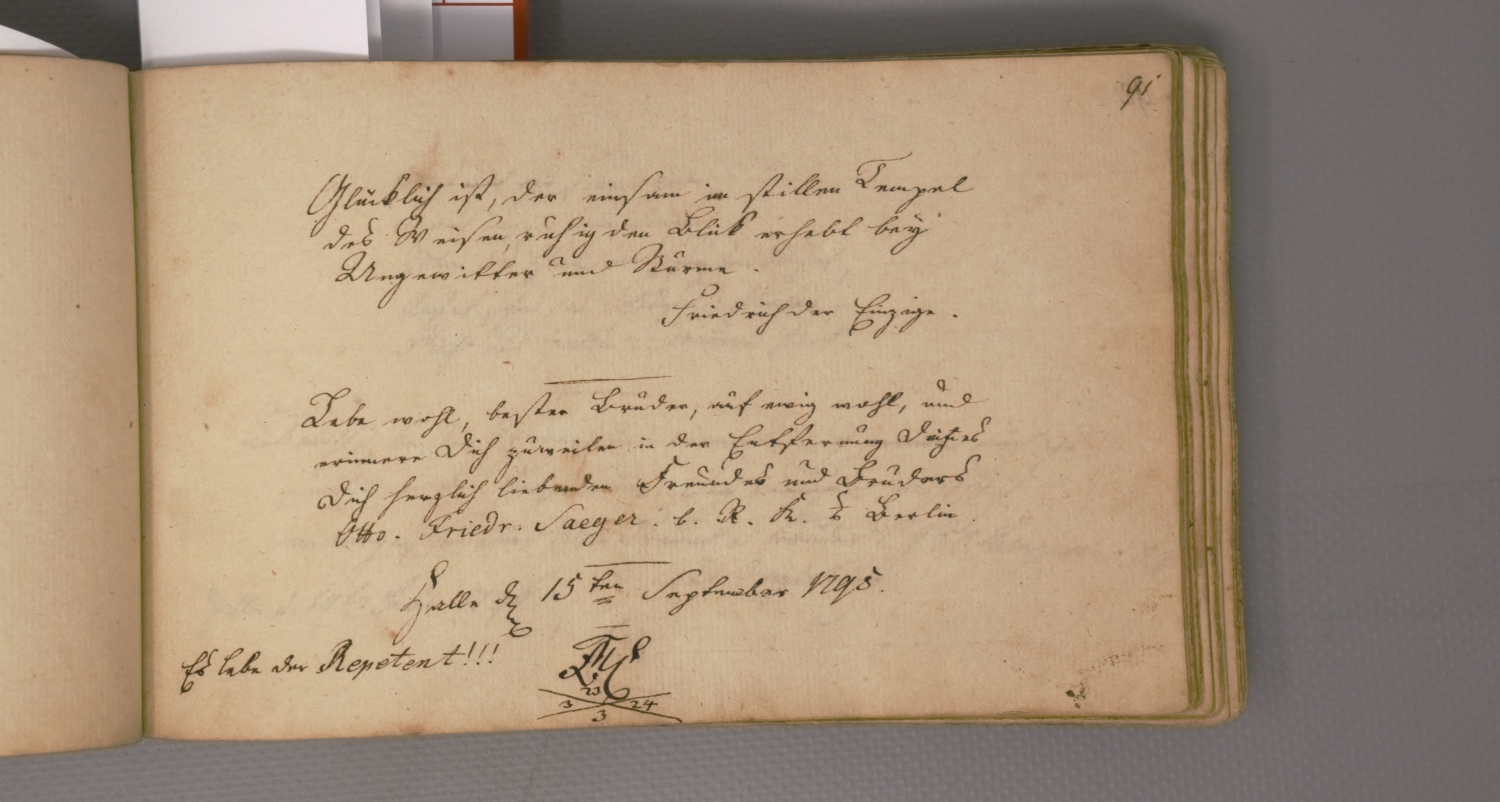 91
Glücklich ist, der einsam im stillen Tempel
des Weisen, ruhig den Blick erhebt bey
Ungewitter und Stürme.
Friedrich der Einzige.
Lebe wohl, bester Bruder, auf ewig wohl, und
erinnere Dich zuweilen in der Entfernung Deines
Dich herzlich liebenden Freundes und Bruders
Otto. Friedr. Saeger. b. R. K. Berlin
Halle d 15ten September 1795.
Es lebe der Repetent!!!
23
3 24
3